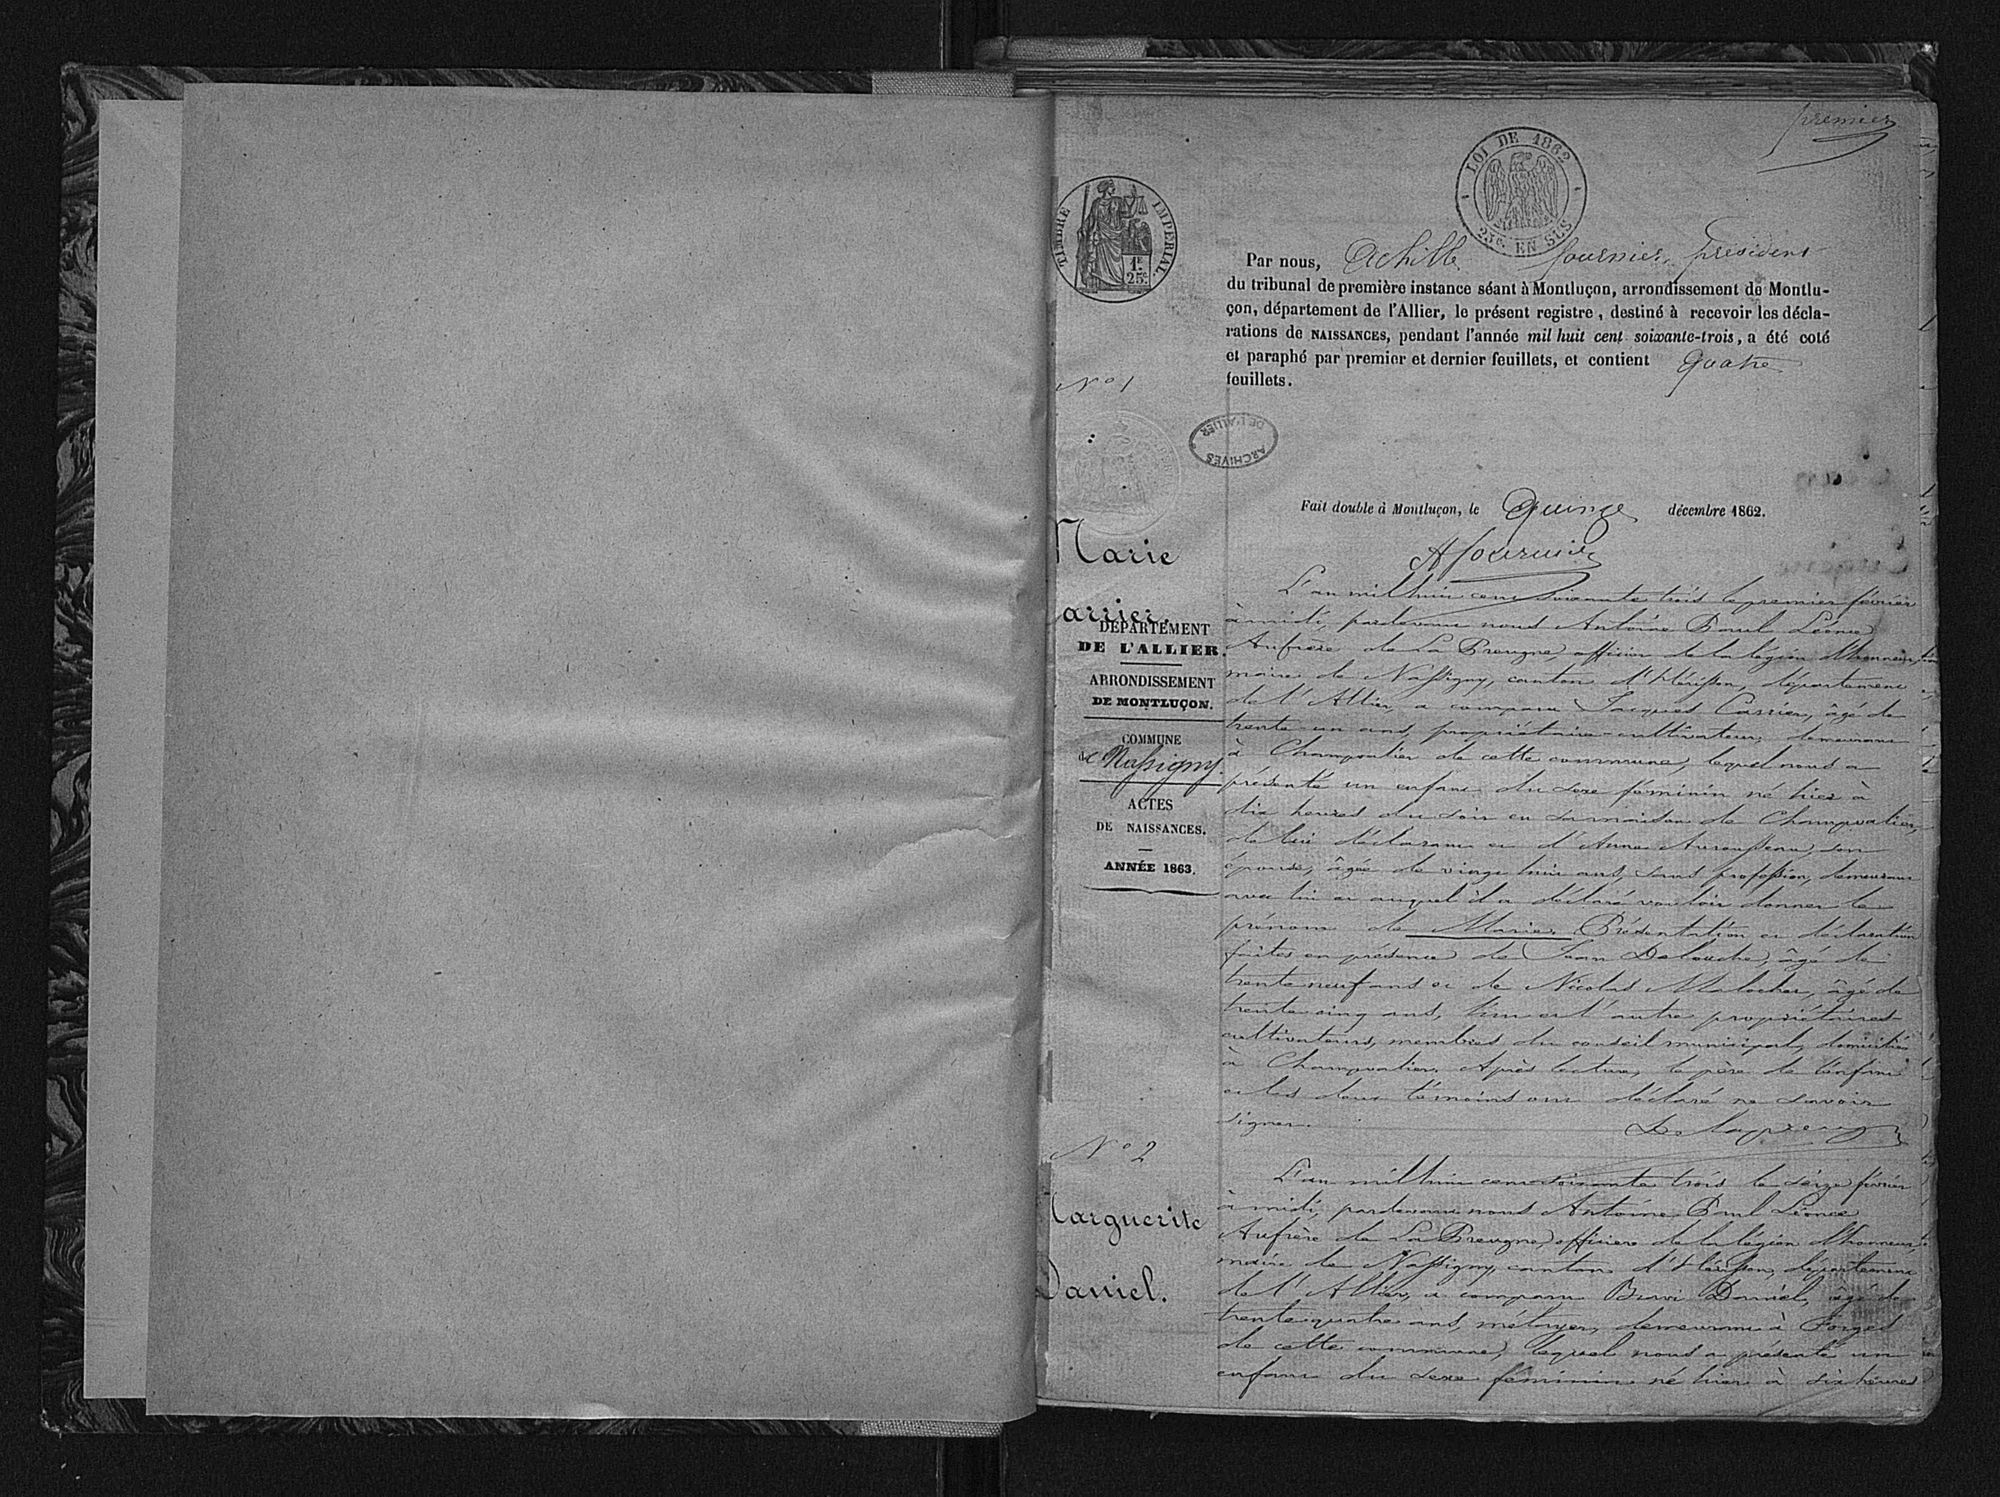 premier
LOI DE 1862
25c. EN SUS
TIMBRE IMPERIAL.
1F.
25c.
Par nous, Achille fournier, président
du tribunal de première instance séant à Montluçon, arrondissement de Montlu-
çon, département de l'Allier, le présent registre, destiné à recevoir les décla-
rations de NAISSANCES, pendant l'année mil huit cent soixante-trois, a été coté
et paraphé par premier et dernier feuillets, et contient quatre
feuillets.
ARCHIVES DE L'ALLIER
Fait double à Montluçon, le quinze décembre 1862.
A fournier
N° 1
Marie
arrier.
DÉPARTEMENT
DE L'ALLIER.
ARRONDISSEMENT
DE MONTLUÇON.
COMMUNE
de Nassigny.
ACTES
DE NAISSANCES.
ANNÉE 1863.
L'an mil huit cent soixante trois le premier février
à midi, pardevant nous Antoine Paul Léonce
Aufrère de La Preugne, officier de la légion d'honneur,
maire de Nassigny, canton d'Hérisson, département
de l'Allier, a comparu Jacques Carrier, âgé de
trente un ans, propriétaire-cultivateur, demeurant
à Champvallier de cette commune, lequel nous a
présenté un enfant du sexe féminin né hier à
dix heures du soir en sa maison de Champvallier,
de lui déclarant et d'Anne Aurousseau, son
épouse, âgée de vingt huit ans, sans profession, demeurant
avec lui et auquel il a déclaré vouloir donner le
prénom de Marie. Présentation et déclaration
faites en présence de Jean Delouche, âgé de
trente neuf ans et de Nicolas Malochet, âgé de
trente cinq ans, l'un et l'autre propriétaires-
cultivateurs, membres du conseil municipal, domiciliés
à Champvallier. Après lecture, le père de l'enfant
et les deux témoins ont déclaré ne savoir
signer.
De lapreugne
N° 2
Marguerite
Daniel.
L'an mil huit cent soixante trois le seize février
à midi, pardevant nous Antoine Paul Léonce
Aufrère de La Preugne, officier de la légion d'honneur,
maire de Nassigny, canton d'Hérisson, département
de l'Allier, a comparu Daniel, âgé de
trente quatre ans, métayer, demeurant à Forges
de cette commune, lequel nous a présenté un
enfant du sexe féminin né hier à six heures